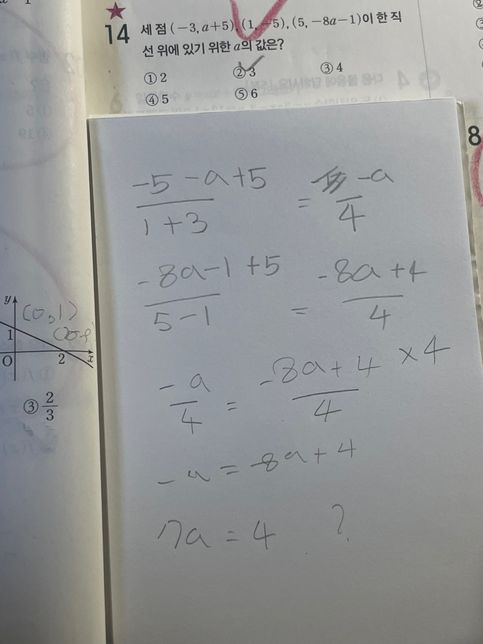 14 세 점 (-3, a+5), (1, -5), (5, -8a-1)이 한 직
선 위에 있기 위한 a의 값은?
① 2 ② 3 ③ 4
④ 5 ⑤ 6
8
-5-a+5 / 1+3 = -a / 4
-8a-1+5 / 5-1 = -8a+4 / 4
-a / 4 = -8a+4 / 4 ×4
-a = -8a+4
7a = 4 ?
y
(0,1)
1
O 2 x
③ 2/3